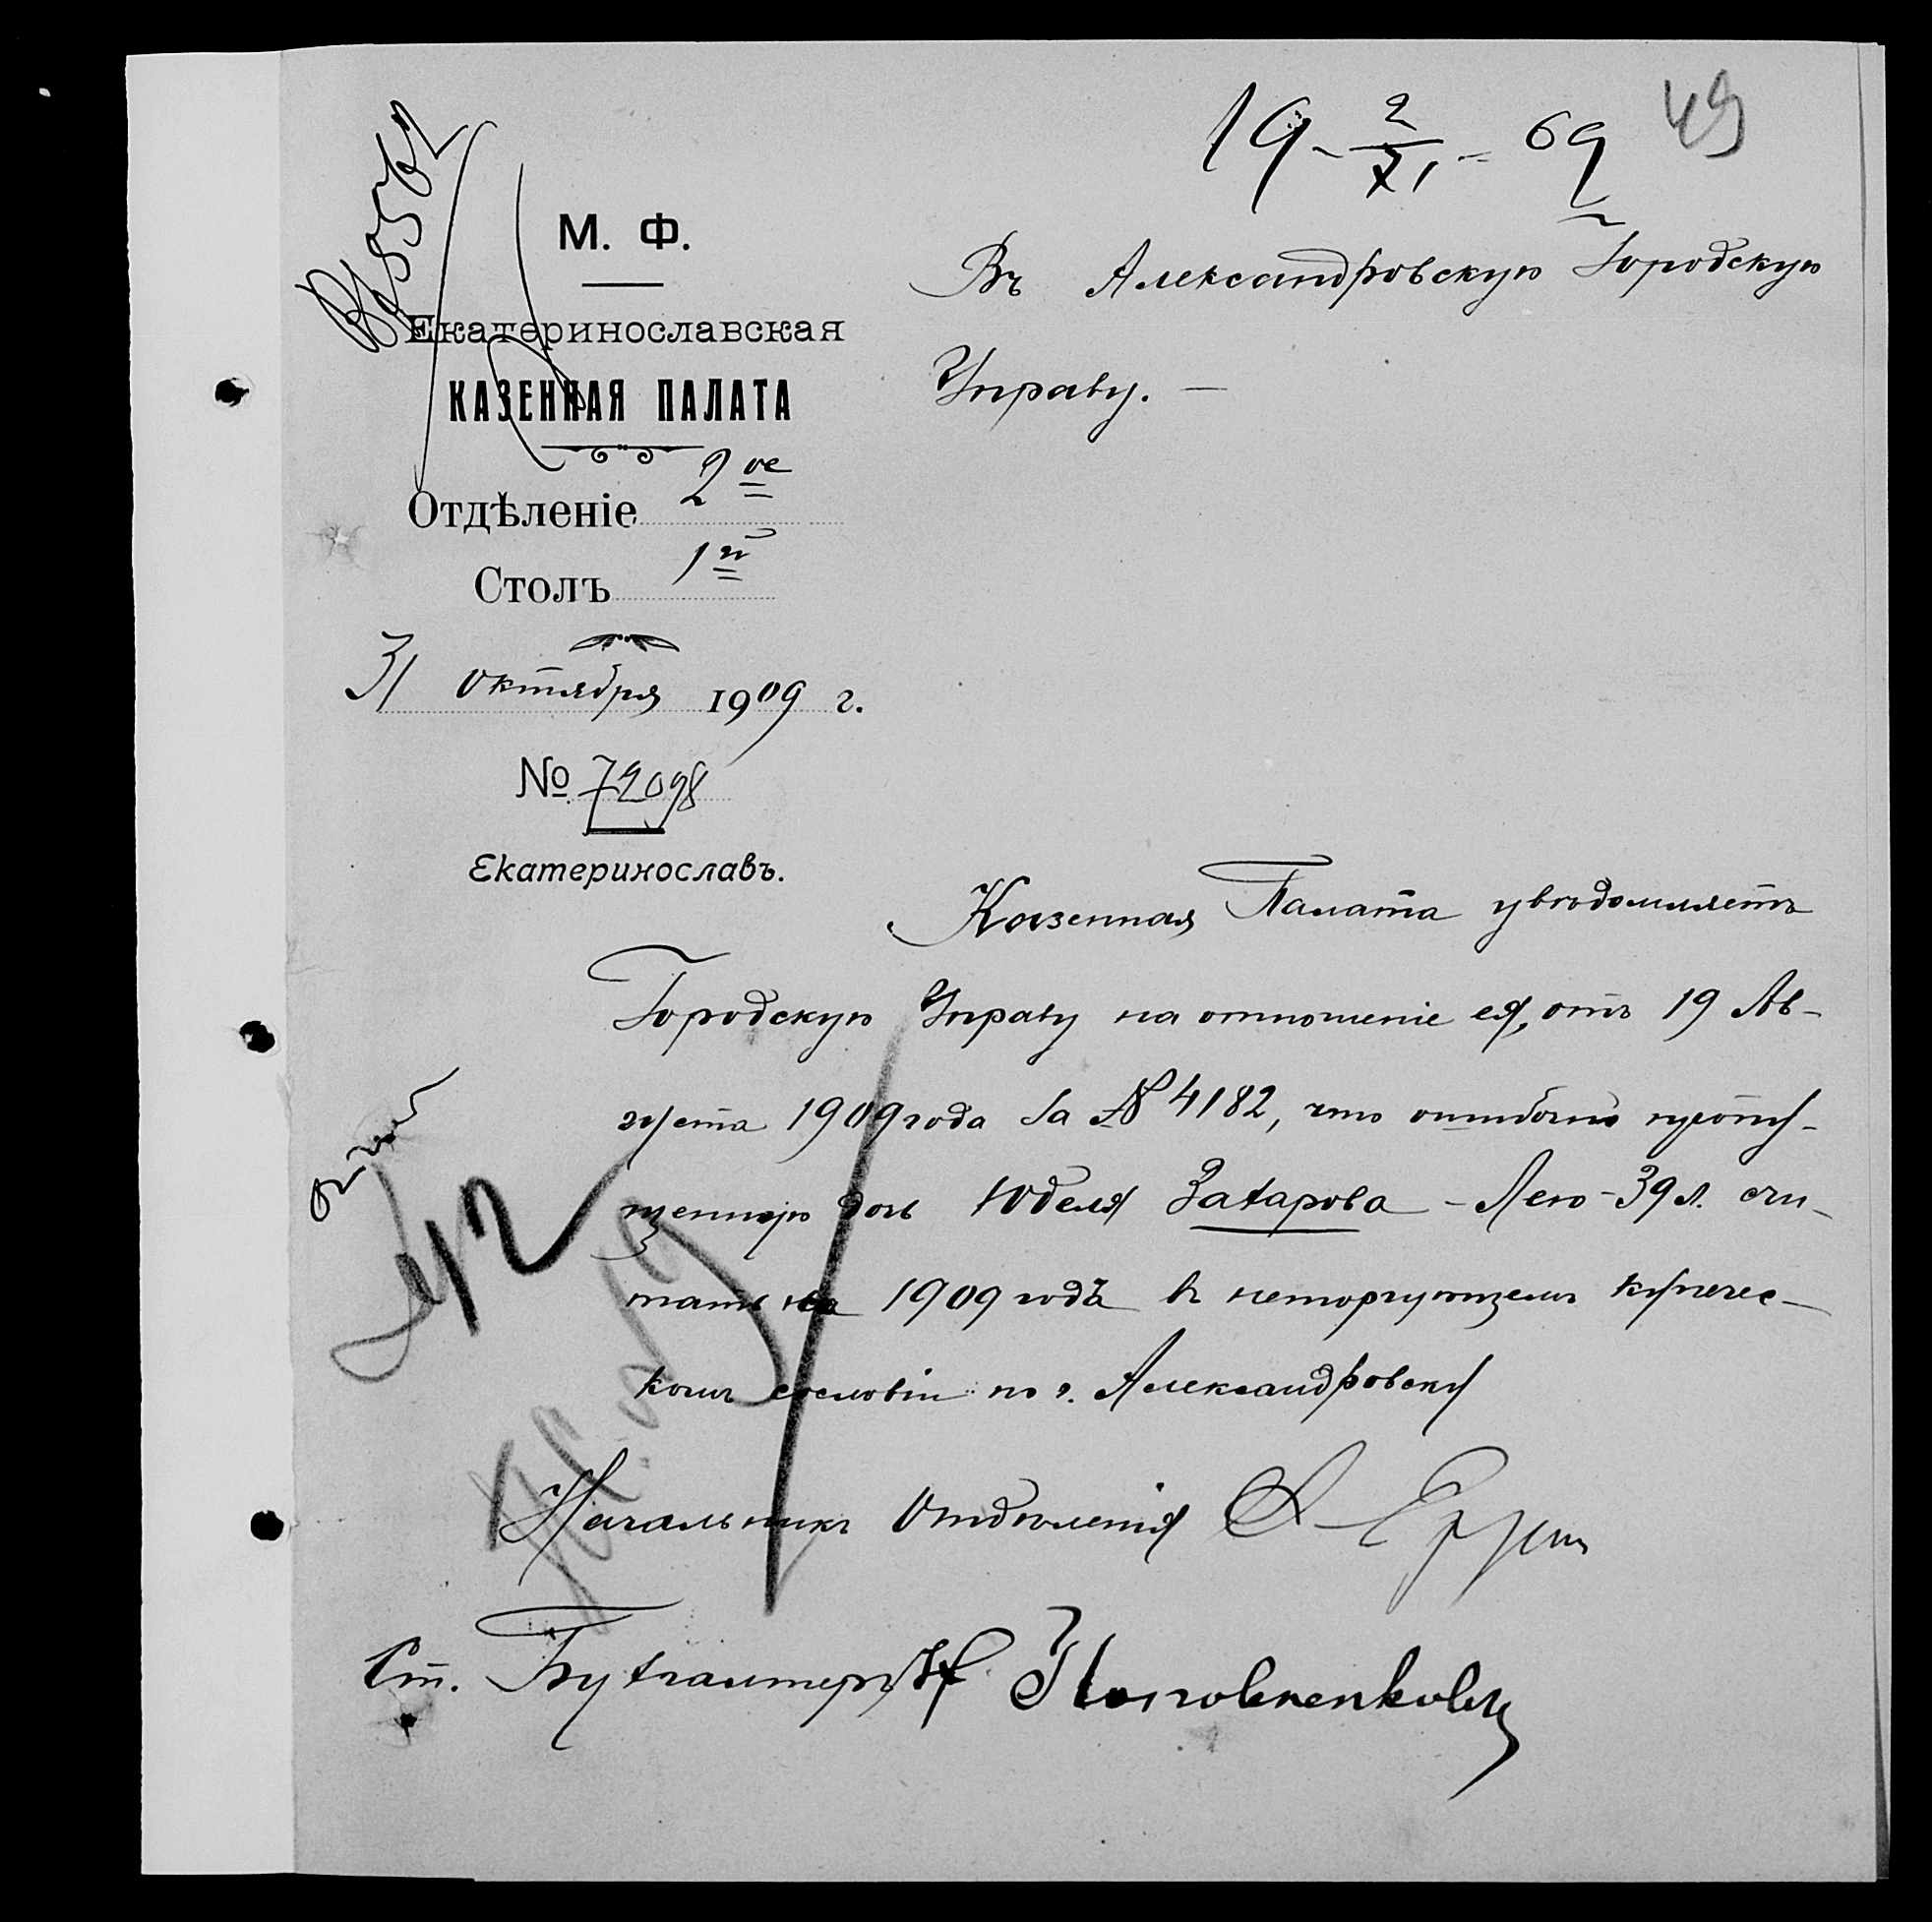 19 - 2/XI - 09
49
М. Ф.
Екатеринославская
КАЗЕННАЯ ПАЛАТА
Отдѣленіе 2ое
Столъ 1й
31 октября 1909 г.
№ 72098
Екатеринославъ.
Въ Александровскую Городскую
Управу. —
Казенная Палата увѣдомляетъ
Городскую Управу на отношеніе ея, отъ 19 Ав-
густа 1909 года за № 4182, что ошибочно пропу-
щенную дочь Юделя Захарова - Лею - 39 л. счи-
тать на 1909 годъ въ неторгующемъ купечес-
комъ сословіи по г. Александровску
Начальникъ Отдѣленія
Ст. Бухгалтеръ